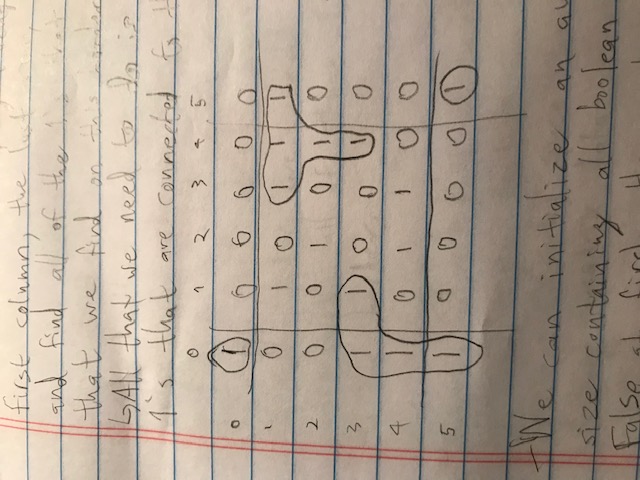 first column, the last
and find all of the 1's that
that we find on this border
↳All that we need to do is
1's that are connected to
0 1 2 3 4 5
0 1 0 0 0 0 0
1 0 1 0 1 1 1
2 0 0 1 0 1 0
3 1 1 0 0 1 0
4 1 0 1 1 0 0
5 1 0 0 0 0 1
-We can initialize an
size containing all boolean
False at first